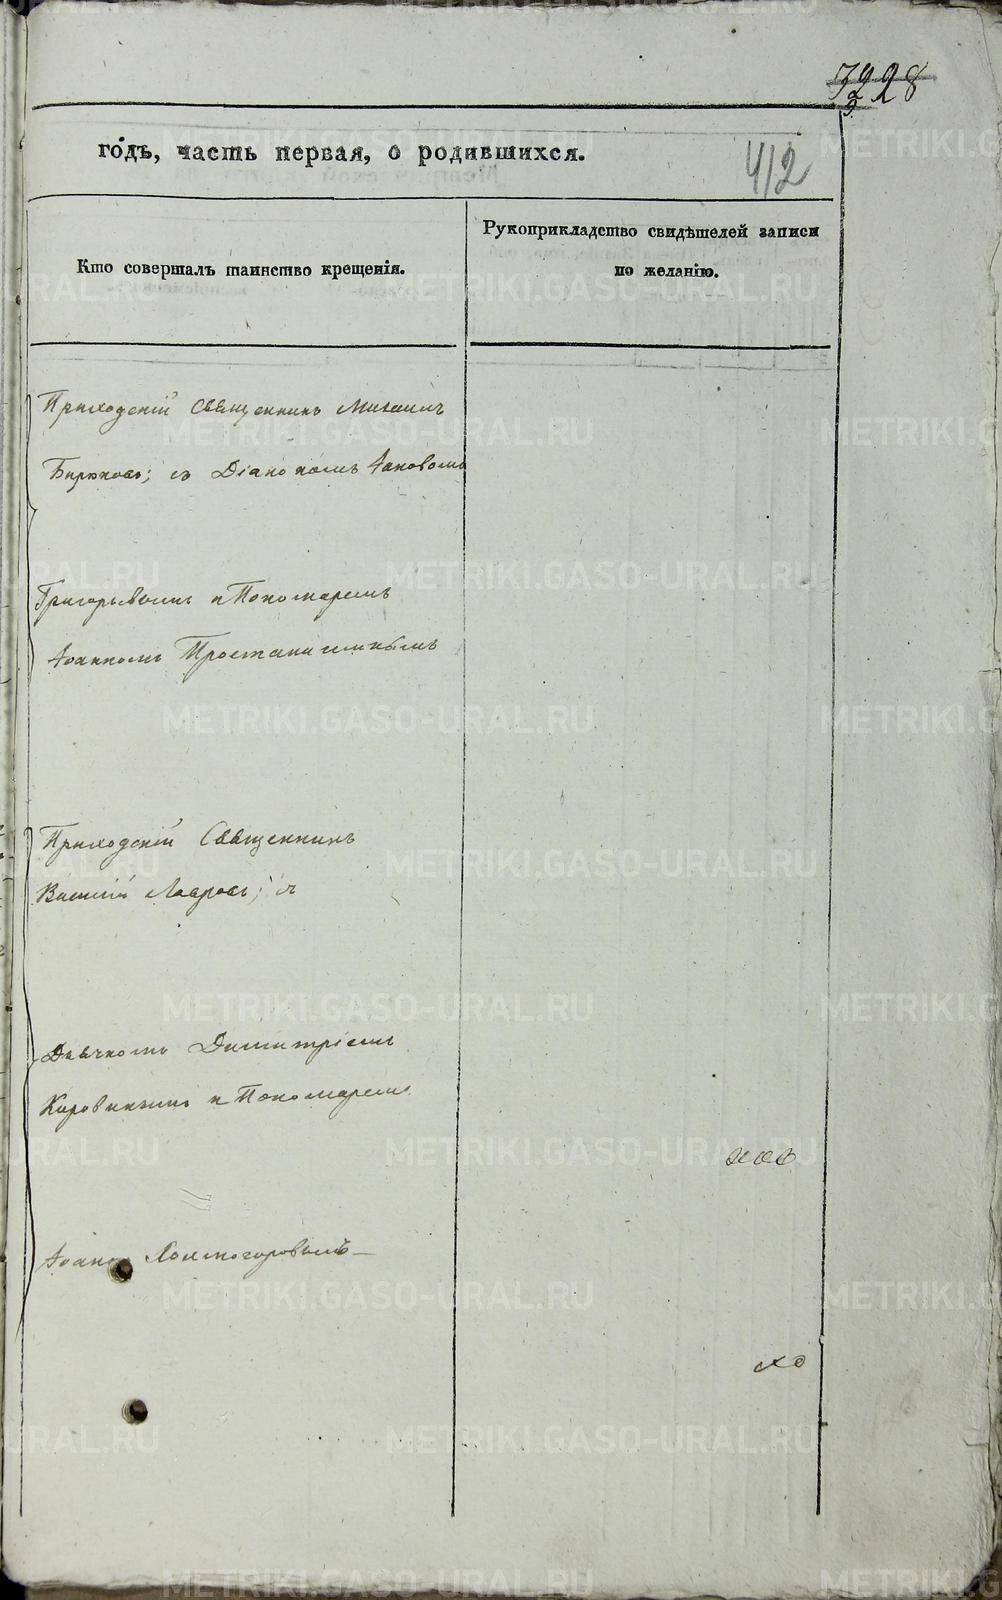 412
годъ, часть первая, о родившихся.
Кто совершалъ таинство крещенія.
Рукоприкладство свидѣтелей записи
по желанію.
Приходскій Священникъ Михаилъ
Бирюковъ; съ Діакономъ Іаковомъ
Григорьевымъ и Пономаремъ
Іоанномъ
Приходскій Священникъ
Василій Лавровъ; съ
Дьячкомъ Димитріемъ
и Пономаремъ
Холмогоровымъ
METRIKI.GASO-URAL.RU